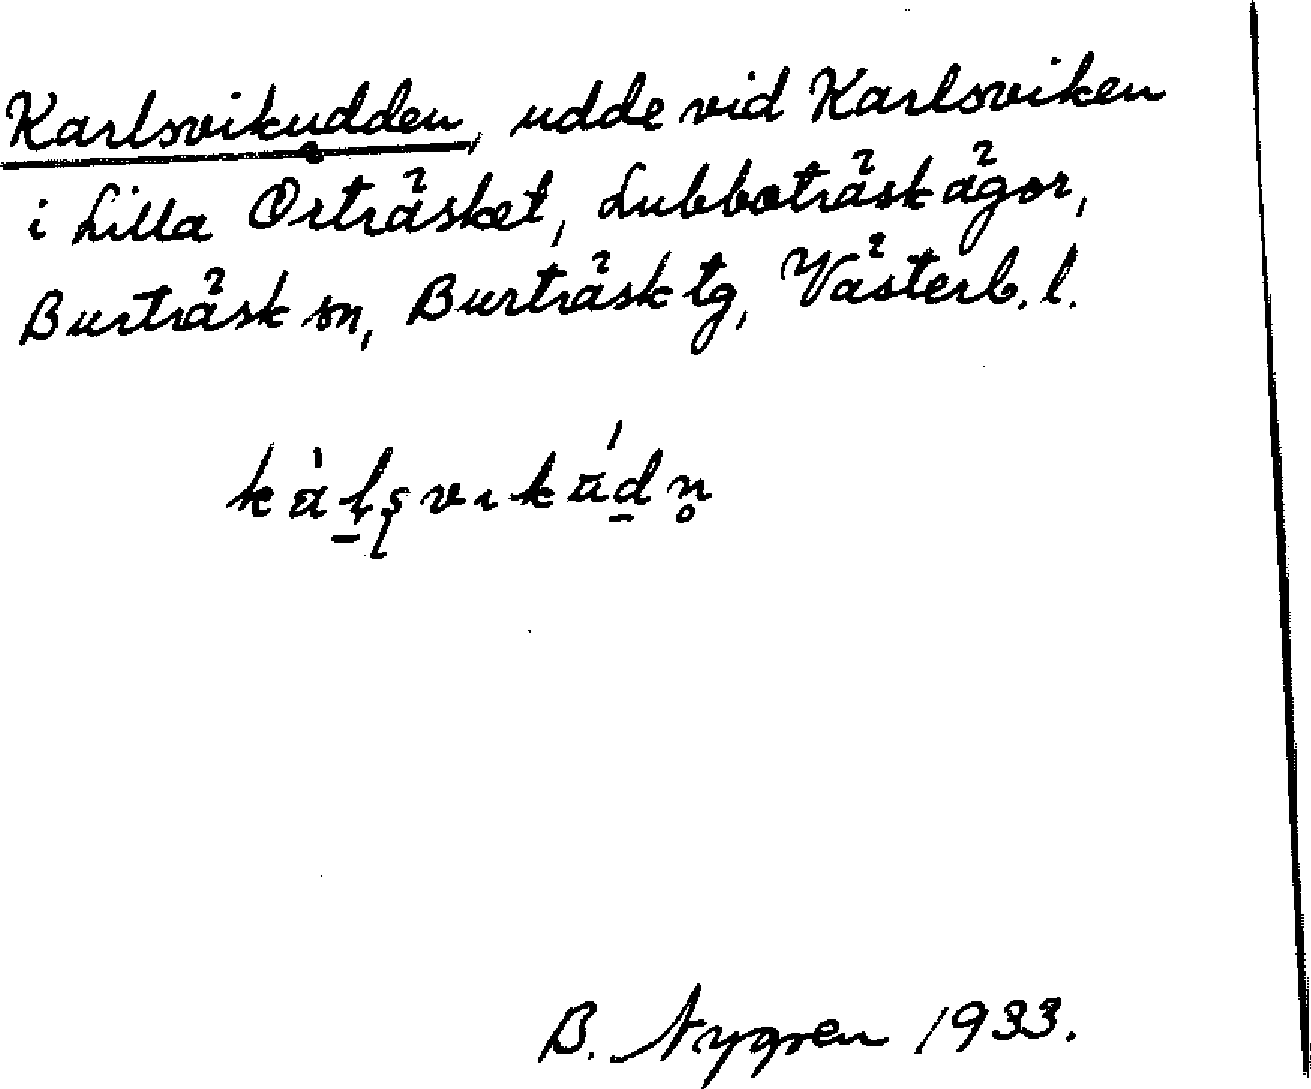 Karlsvikudden, udde vid Karlsviken
i Lilla Orträsket, Lubboträsk ägor,
Burträsk sn, Burträsk tg, Västerb. l.
B. Nygren 1933.